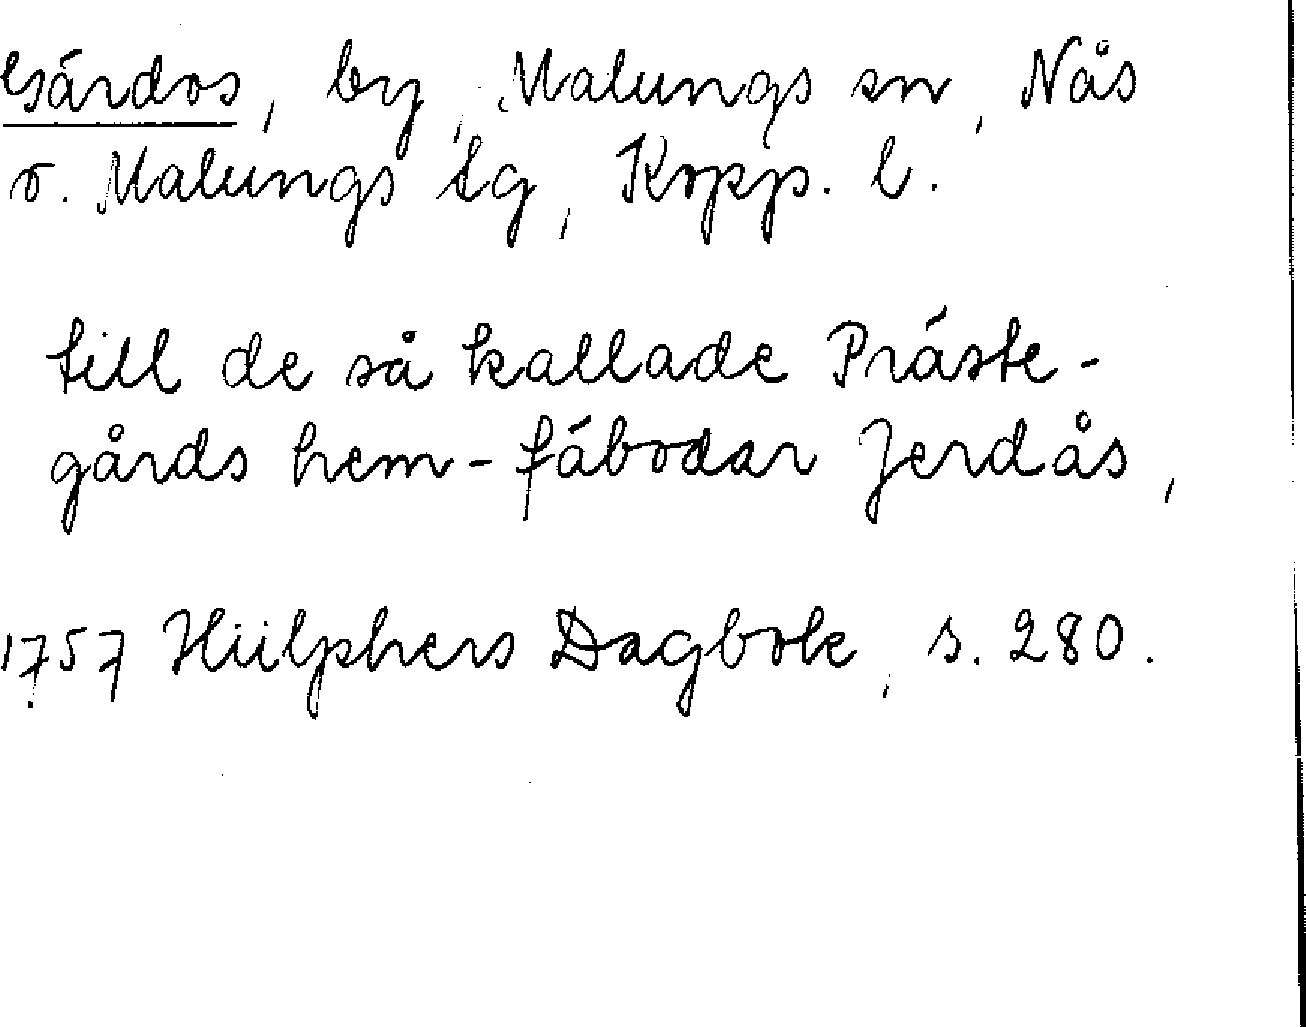 Gärdos, by, Malungs sn, Nås
o. Malungs tg, Kopp. l.
till de så kallade Präste-
gårds hem-fäbodar Jerdås,
1757 Hülphers Dagbok, s. 280.